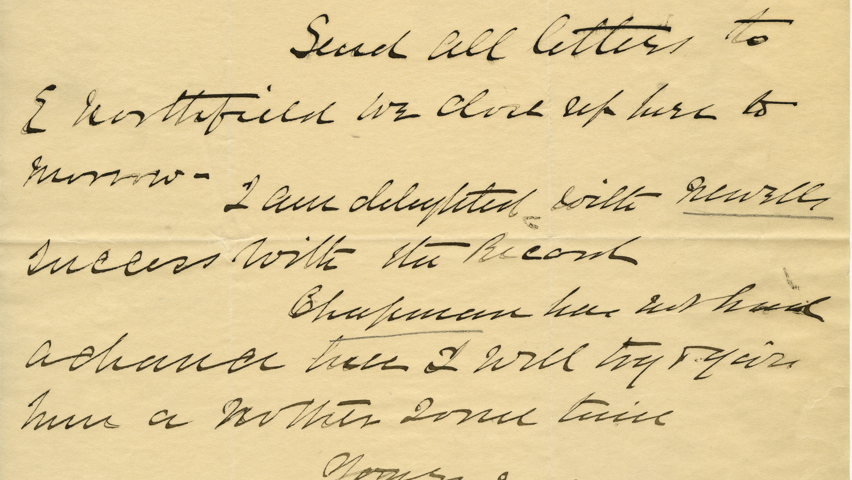 Send all letters to
E Northfield we close up here to
morrow -
I am delighted with Newells
success with the Record
Chapman has not had
a chance here I will try & give
him a nother some time